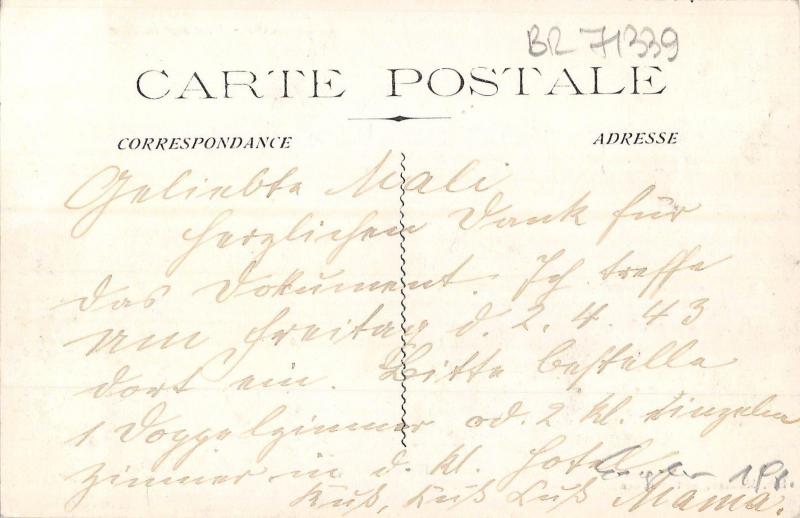 BR 71339
CARTE POSTALE
CORRESPONDANCE
ADRESSE
Geliebte Mali
herzlichen Dank für
das Dokument. Ich treffe
am Freitag d. 2. 4. 43
dort ein. Bitte bestelle
1 Doppelzimmer od. 2 kl. Einzeln
zimmer in d. kl. Hotel
Kuß, Kuß Kuß Mama.